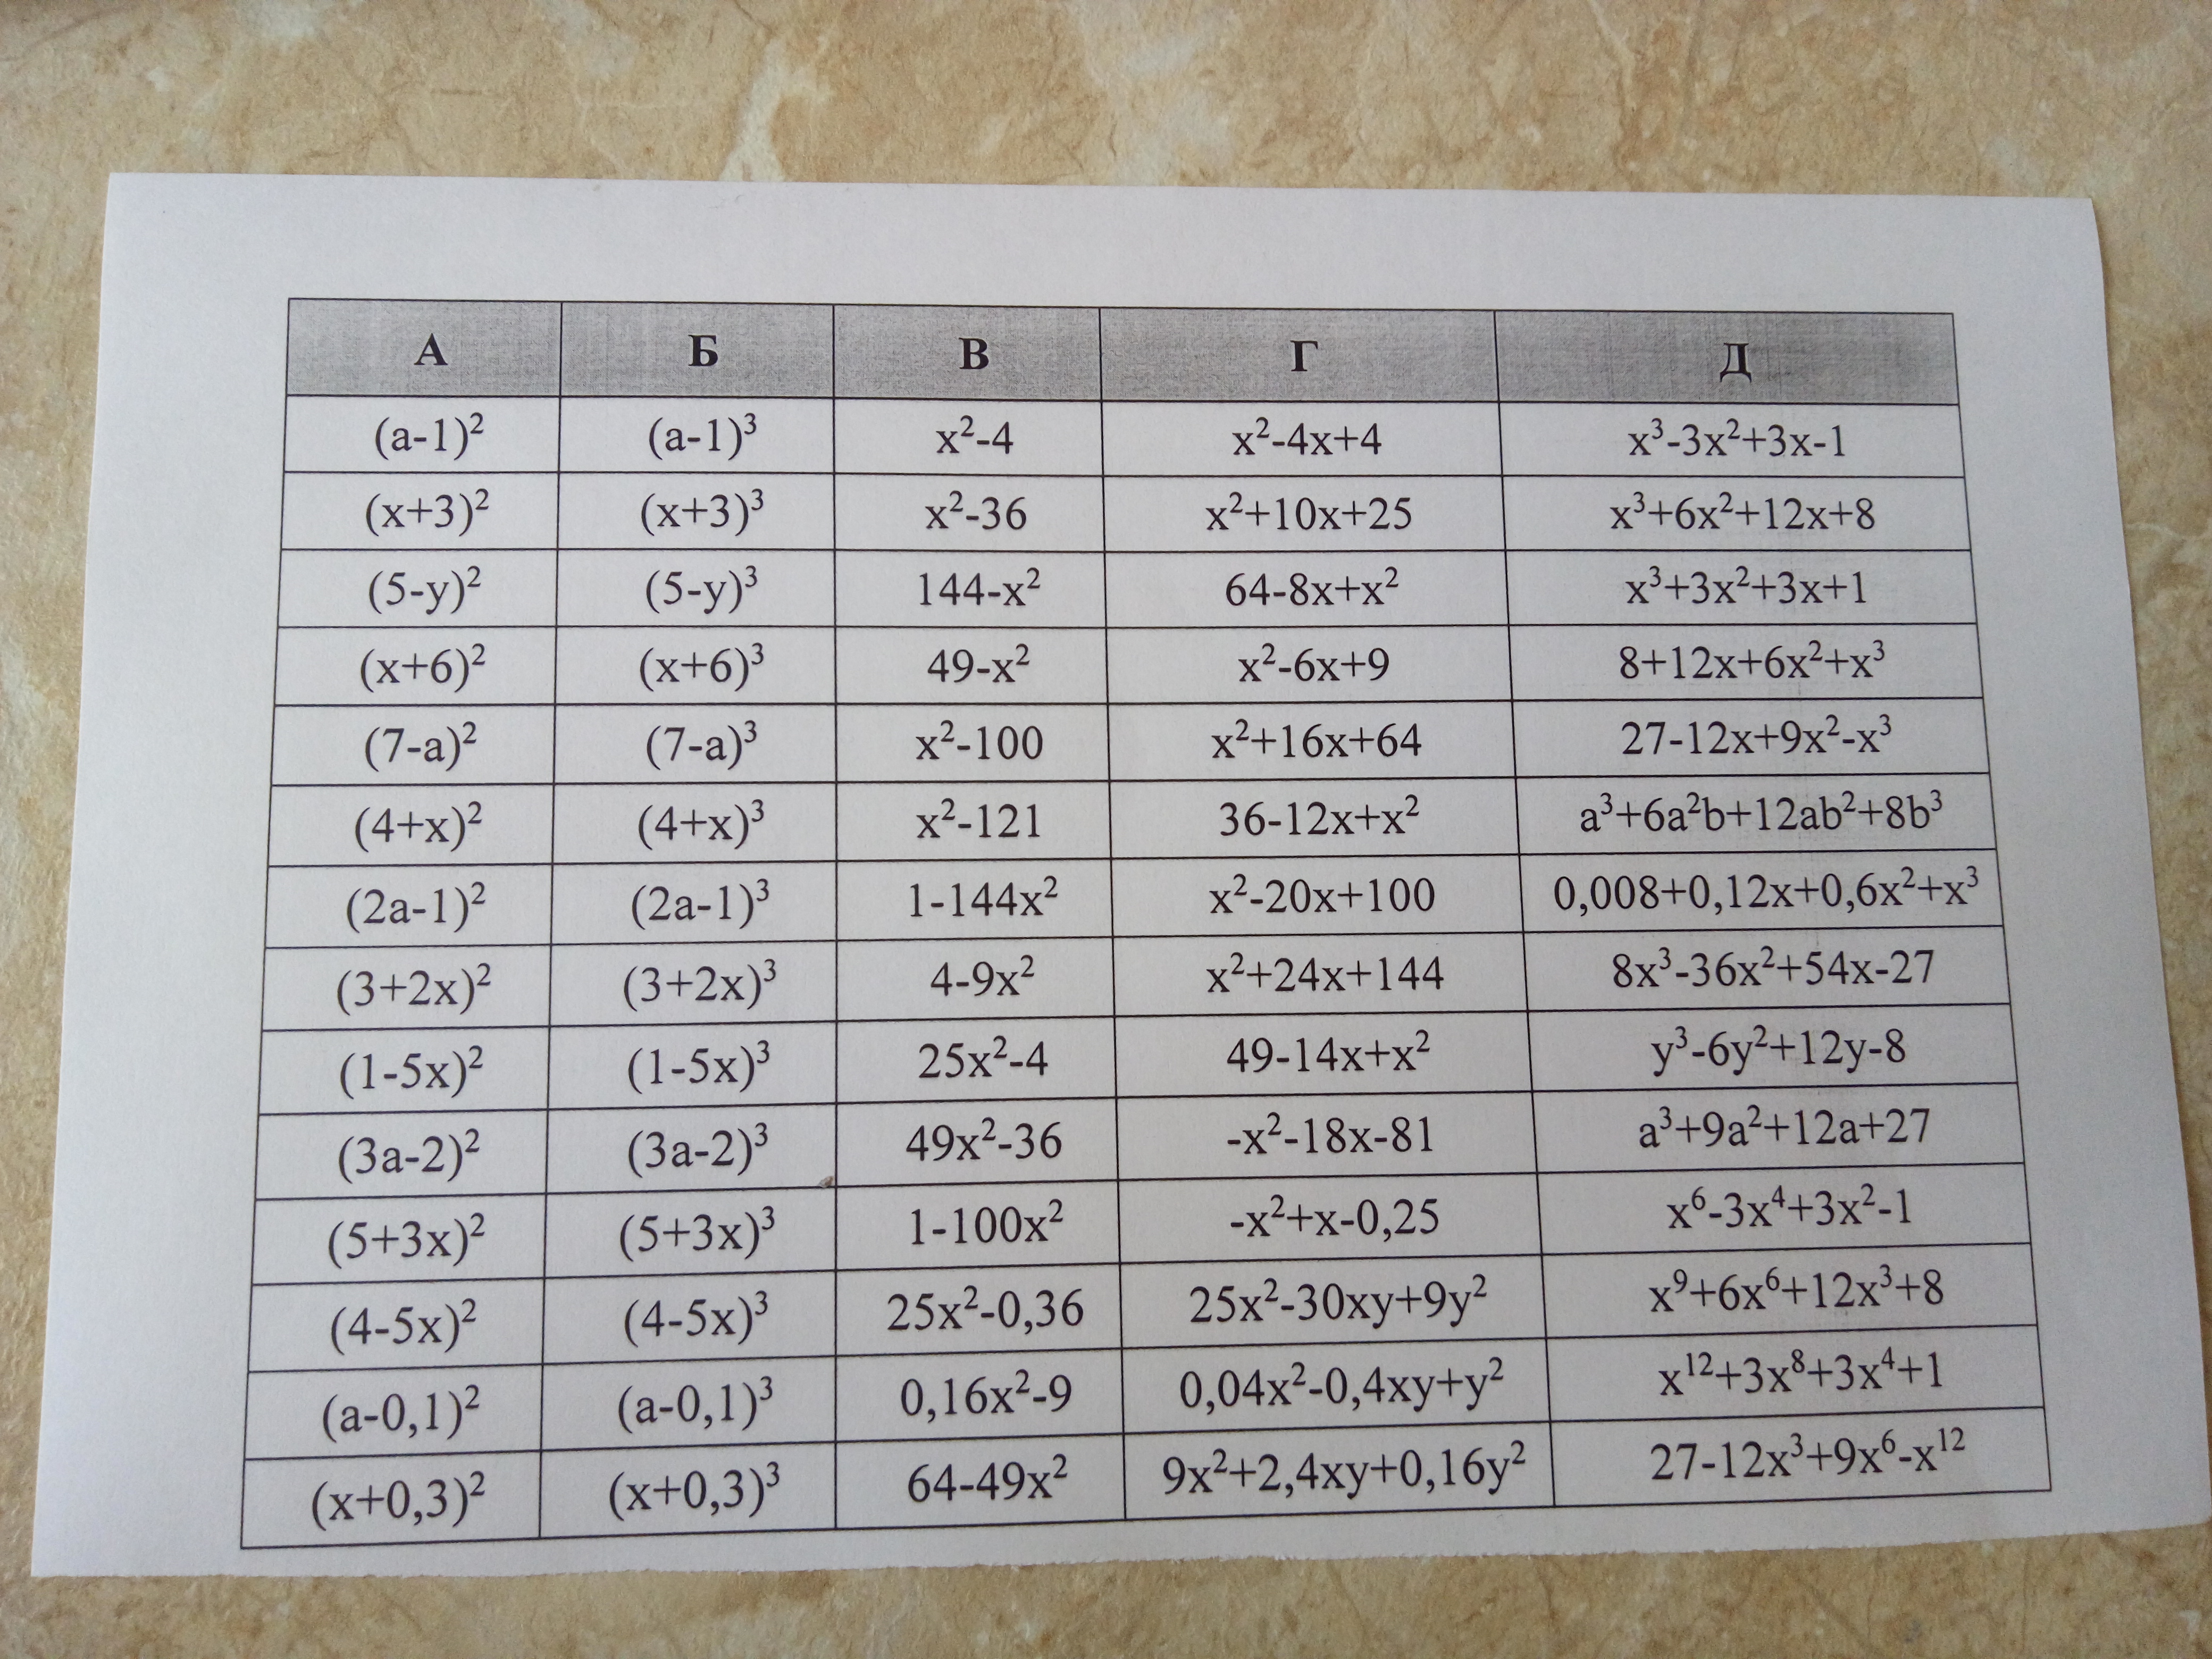 А Б В Г Д
(a-1)² (a-1)³ x²-4 x²-4x+4 x³-3x²+3x-1
(x+3)² (x+3)³ x²-36 x²+10x+25 x³+6x²+12x+8
(5-y)² (5-y)³ 144-x² 64-8x+x² x³+3x²+3x+1
(x+6)² (x+6)³ 49-x² x²-6x+9 8+12x+6x²+x³
(7-a)² (7-a)³ x²-100 x²+16x+64 27-12x+9x²-x³
(4+x)² (4+x)³ x²-121 36-12x+x² a³+6a²b+12ab²+8b³
(2a-1)² (2a-1)³ 1-144x² x²-20x+100 0,008+0,12x+0,6x²+x³
(3+2x)² (3+2x)³ 4-9x² x²+24x+144 8x³-36x²+54x-27
(1-5x)² (1-5x)³ 25x²-4 49-14x+x² y³-6y²+12y-8
(3a-2)² (3a-2)³ 49x²-36 -x²-18x-81 a³+9a²+12a+27
(5+3x)² (5+3x)³ 1-100x² -x²+x-0,25 x⁶-3x⁴+3x²-1
(4-5x)² (4-5x)³ 25x²-0,36 25x²-30xy+9y² x⁹+6x⁶+12x³+8
(a-0,1)² (a-0,1)³ 0,16x²-9 0,04x²-0,4xy+y² x¹²+3x⁸+3x⁴+1
(x+0,3)² (x+0,3)³ 64-49x² 9x²+2,4xy+0,16y² 27-12x³+9x⁶-x¹²